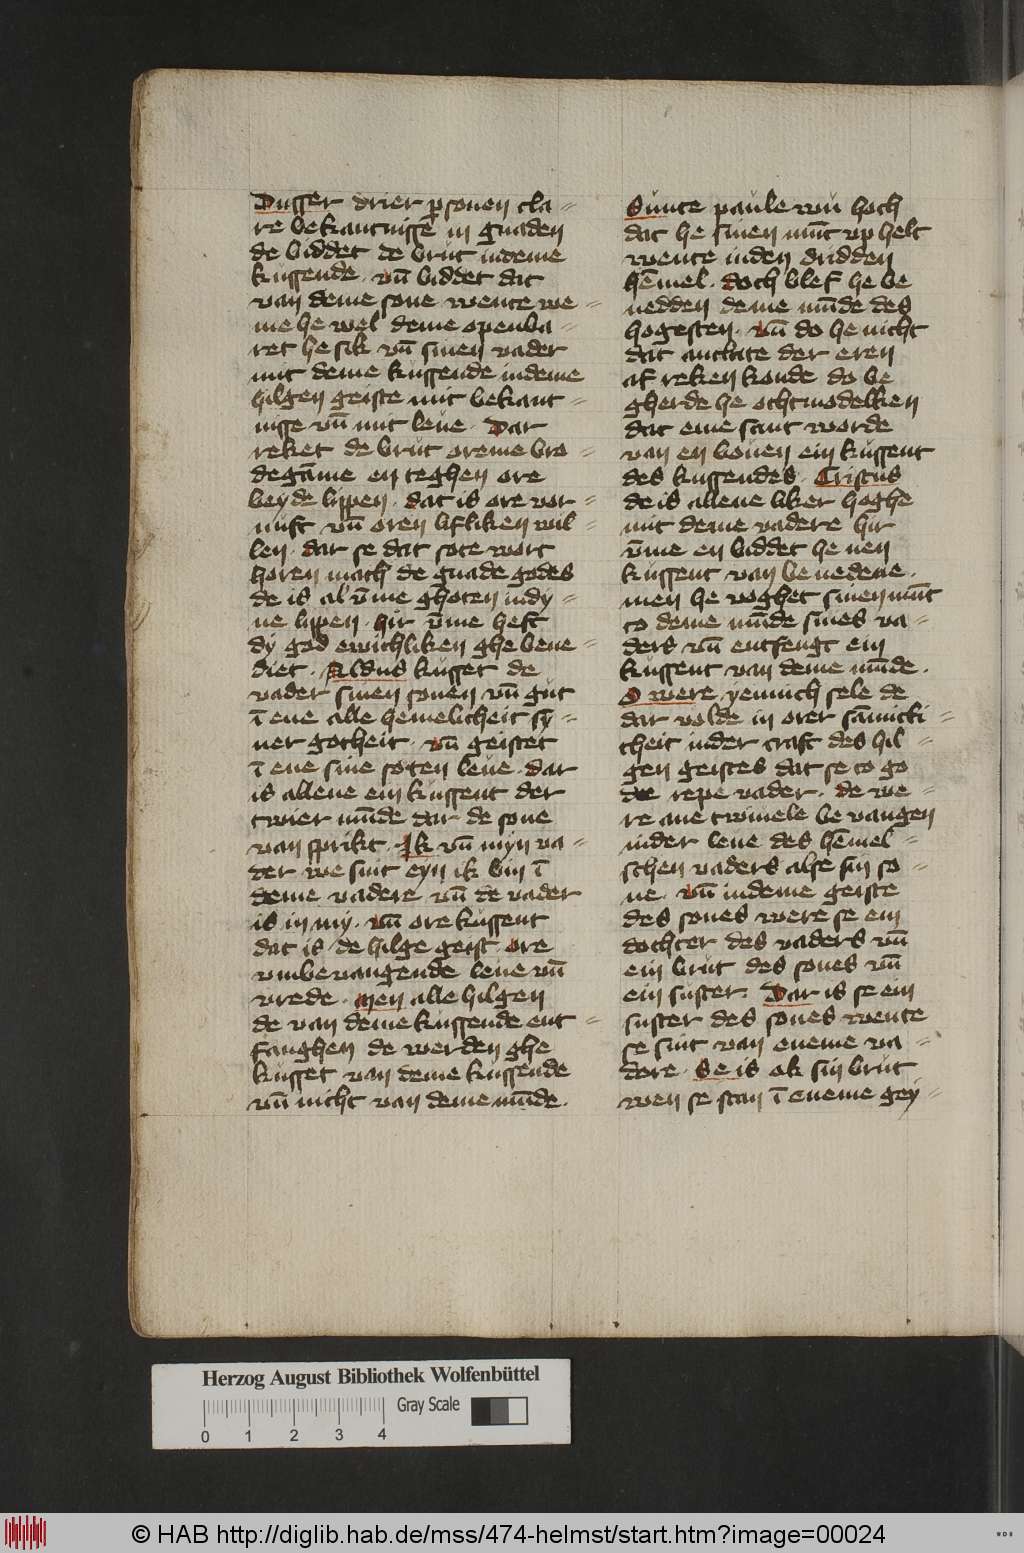 Dusser drier p̲sonen cla⸗
re bekantnisse in gnaden
de biddet de brut indeme
kussende · vn̄ biddet dat
van deme sone wente we⸗
me he wel deme openba⸗
ret he sik vn̄ sinen vader
mit deme kussende indeme
hilgen geiste mit bekant⸗
nisse vn̄ mit leue · Dar
reket de brut oreme bro⸗
degāme en teghen ore
beyde lippen · dat is ore vor⸗
nuft vn̄ oren lifliken wil⸗
len · dar se dat sote wort
horen mach de gnade godes
de is al v̄me ghoten indy⸗
ne lippen · hir v̄me heft
dy god ewichliken ghe bene⸗
diet · Aldus kusset de
vader sinen sonen vn̄ gut
ī ene alle hemelicheit sȳ⸗
ner gotheit · vn̄ geistet
ī ene sine soten leue · dar
is allene ein kussent der
twier mūde dar de sone
van sprikt · Ik vn̄ myn va⸗
der we sint eyn ik bin ī
deme vadere vn̄ de vader
is in my · vn̄ ore kussent
dat is de hilge geist ore
vmbevangende leue vn̄
vrede · men alle hilgen
de van deme kussende ent⸗
fanghen de werden ghe
kusset van deme kussende
vn̄ nicht van deme mūde ·
Sunte paule wu hoch
dat he sinen mūt vp helt
wente inden dridden
hēmel · doch blef he be
nedden deme mūde des
hogesten · vn̄ do he nicht
dat anclate der eren
af reken konde do be
gherde he othmodelken
dat eme sant worde
van en bouen ein kussent
des kussendes · Cristus
de is allene liker hoghe
mit deme vadere hir
v̄me en biddet he nen
kussent van benedene ·
men he voghet sinen mūt
to deme mūde sines va⸗
ders vn̄ entfengt ein
kussent van deme mūde ·
O were yennich sele de
dar volde in orer sāmicki⸗
cheit inder craft des hil⸗
gen geistes dat se to go
de repe vader · de we⸗
re ane twinele bevangen
inder leue des hēmel⸗
schen vaders alse sin so⸗
ne · vn̄ indeme geiste
des sones were se ein
dochter des vaders vn̄
ein brut des sones vn̄
ein suster · Dar is se ein
suster des sones wente
se sint van eneme va⸗
dere · Se is ok sin brut
wen se stan ī eneme gey⸗
Herzog August Bibliothek Wolfenbüttel
Gray Scale
0 1 2 3 4
© HAB http://diglib.hab.de/mss/474-helmst/start.htm?image=00024
WDB